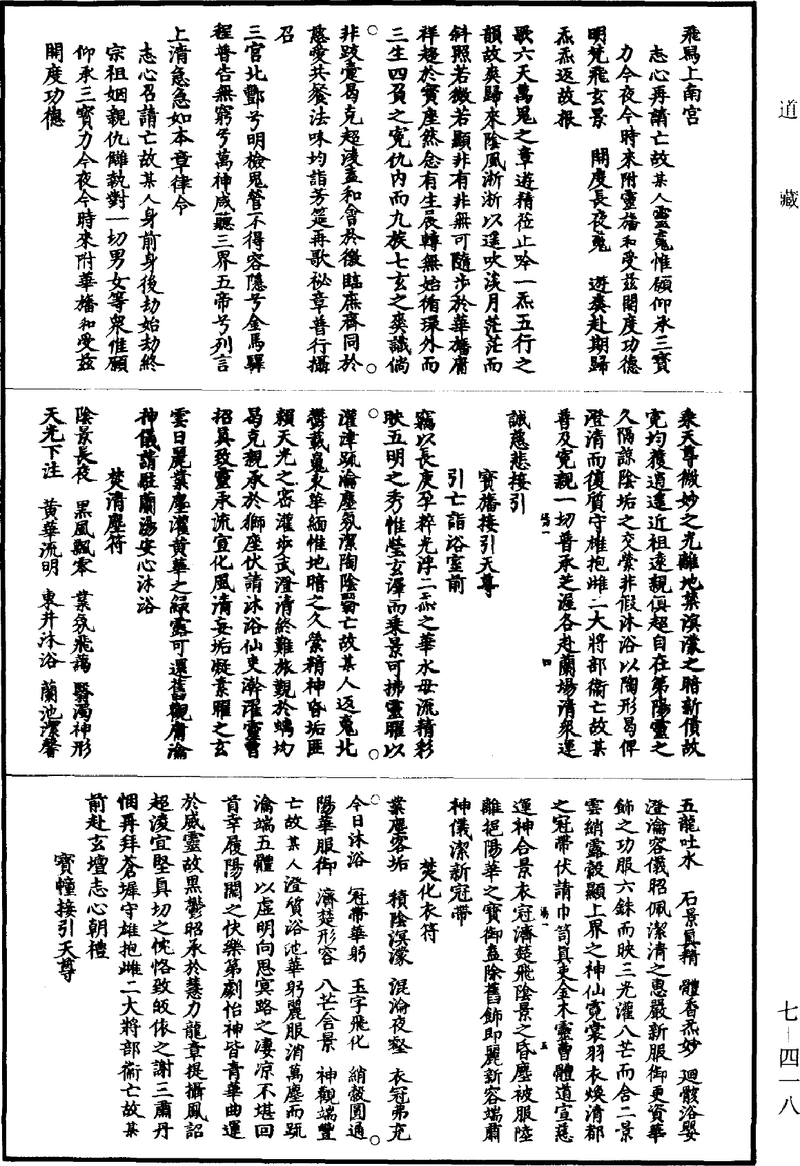 道藏
飛舄上南宮
志心再請亡故某人靈䰟惟願仰承三寶
力今夜今時來附靈旛和受茲開度功德
明梵飛玄景　開度長夜䰟　遊爽赴期歸
炁炁返故根
歌六天萬鬼之章遊精莅止吟一炁五行之
韻故爽歸來陰風淅淅以遥吹淡月茫茫而
斜照若微若顯非有非無可隨步於華旛膺
祥趨於寶座然念有生展轉無始循環外而
三生四召之寃仇內而九族七玄之爽識倘
非跂處曷克超淩盍和會於微臨庶齊同於
慈愛共餐法味均詣芳筵再歌祕章普行攝
召
三官北酆兮明檢鬼營不得容隱兮金馬驛
程普告無窮兮萬神咸聽三界五帝兮列言
上清急急如本章律令
志心召請亡故某人身前身後劫始劫終
宗祖姻親仇讎執對一切男女等衆惟願
仰承三寶力今夜今時來附華旛和受茲
開度功德
乘天尊微妙之光離地禁溟濛之暗新債故
寃均獲逍遥近祖遠親俱超自在第陽靈之
久隔諒陰垢之交縈非假沐浴以陶形曷俾
澄清而復質守雄抱雌二大將部衞亡故某
普及寃親一切普承芝渥各赴蘭場清衆運
誠慈悲接引
寶旛接引天尊
引亡詣浴室前
竊以長庚孕粹光浮二炁之華水母流精彩
映五明之秀惟瑩玄澤而乘景可拂靈曜以
灌津疏瀹塵氛潔陶陰翳亡故某人返䰟北
鬱載䰟東華緬惟地暗之久縈精神昏垢匪
賴天光之密灌步武澄清終難旅覲於螭㘬
曷克親承於獅座伏請沐浴仙吏澣濯靈曹
招真致靈承流宣化風清妄垢凝素曜之玄
雲日麗業塵濯黄華之綠露可還舊觀膺瀹
神儀請駐蘭湯安心沐浴
焚清塵符
陰景長夜　黑風飄零　業氛飛藹　翳濁神形
天光下注　黄華流明　東井沐浴　蘭池潔馨
五龍吐水　石景真精　體香炁妙　迴骸浴嬰
澄瀹容儀昭佩潔清之惠嚴新服御更資華
飾之功服六銖而映三光灌八芒而含二景
雲綃露縠顯上界之神仙霓裳羽衣煥清都
之冠帶伏請巾笥真吏金木靈曹體道宣慈
運神合景衣冠濟楚飛陰景之昏塵被服陸
離挹陽華之寶御盍除舊飾即麗新容端肅
神儀潔新冠帶
焚化衣符
業塵容垢　積陰溟濛　混淪夜壑　衣冠弗充
今日沐浴　冠帶華躬　玉字飛化　綃縠圓通
陽華服御　濟楚形容　八芒合景　神觀端豐
亡故某人澄質浴池華躬麗服消萬塵而疏
瀹端五體以虛明向思冥路之淒凉不堪回
首幸履陽關之快樂第劇怡神皆青華曲運
於威靈故黑鬱昭承於慧力龍章提攝鳳詔
超淩宜堅真切之忱恪致皈依之謝三肅丹
悃再拜蒼墀守雄抱雌二大將部衞亡故某
前赴玄壇志心朝禮
寶幢接引天尊
七—四一八